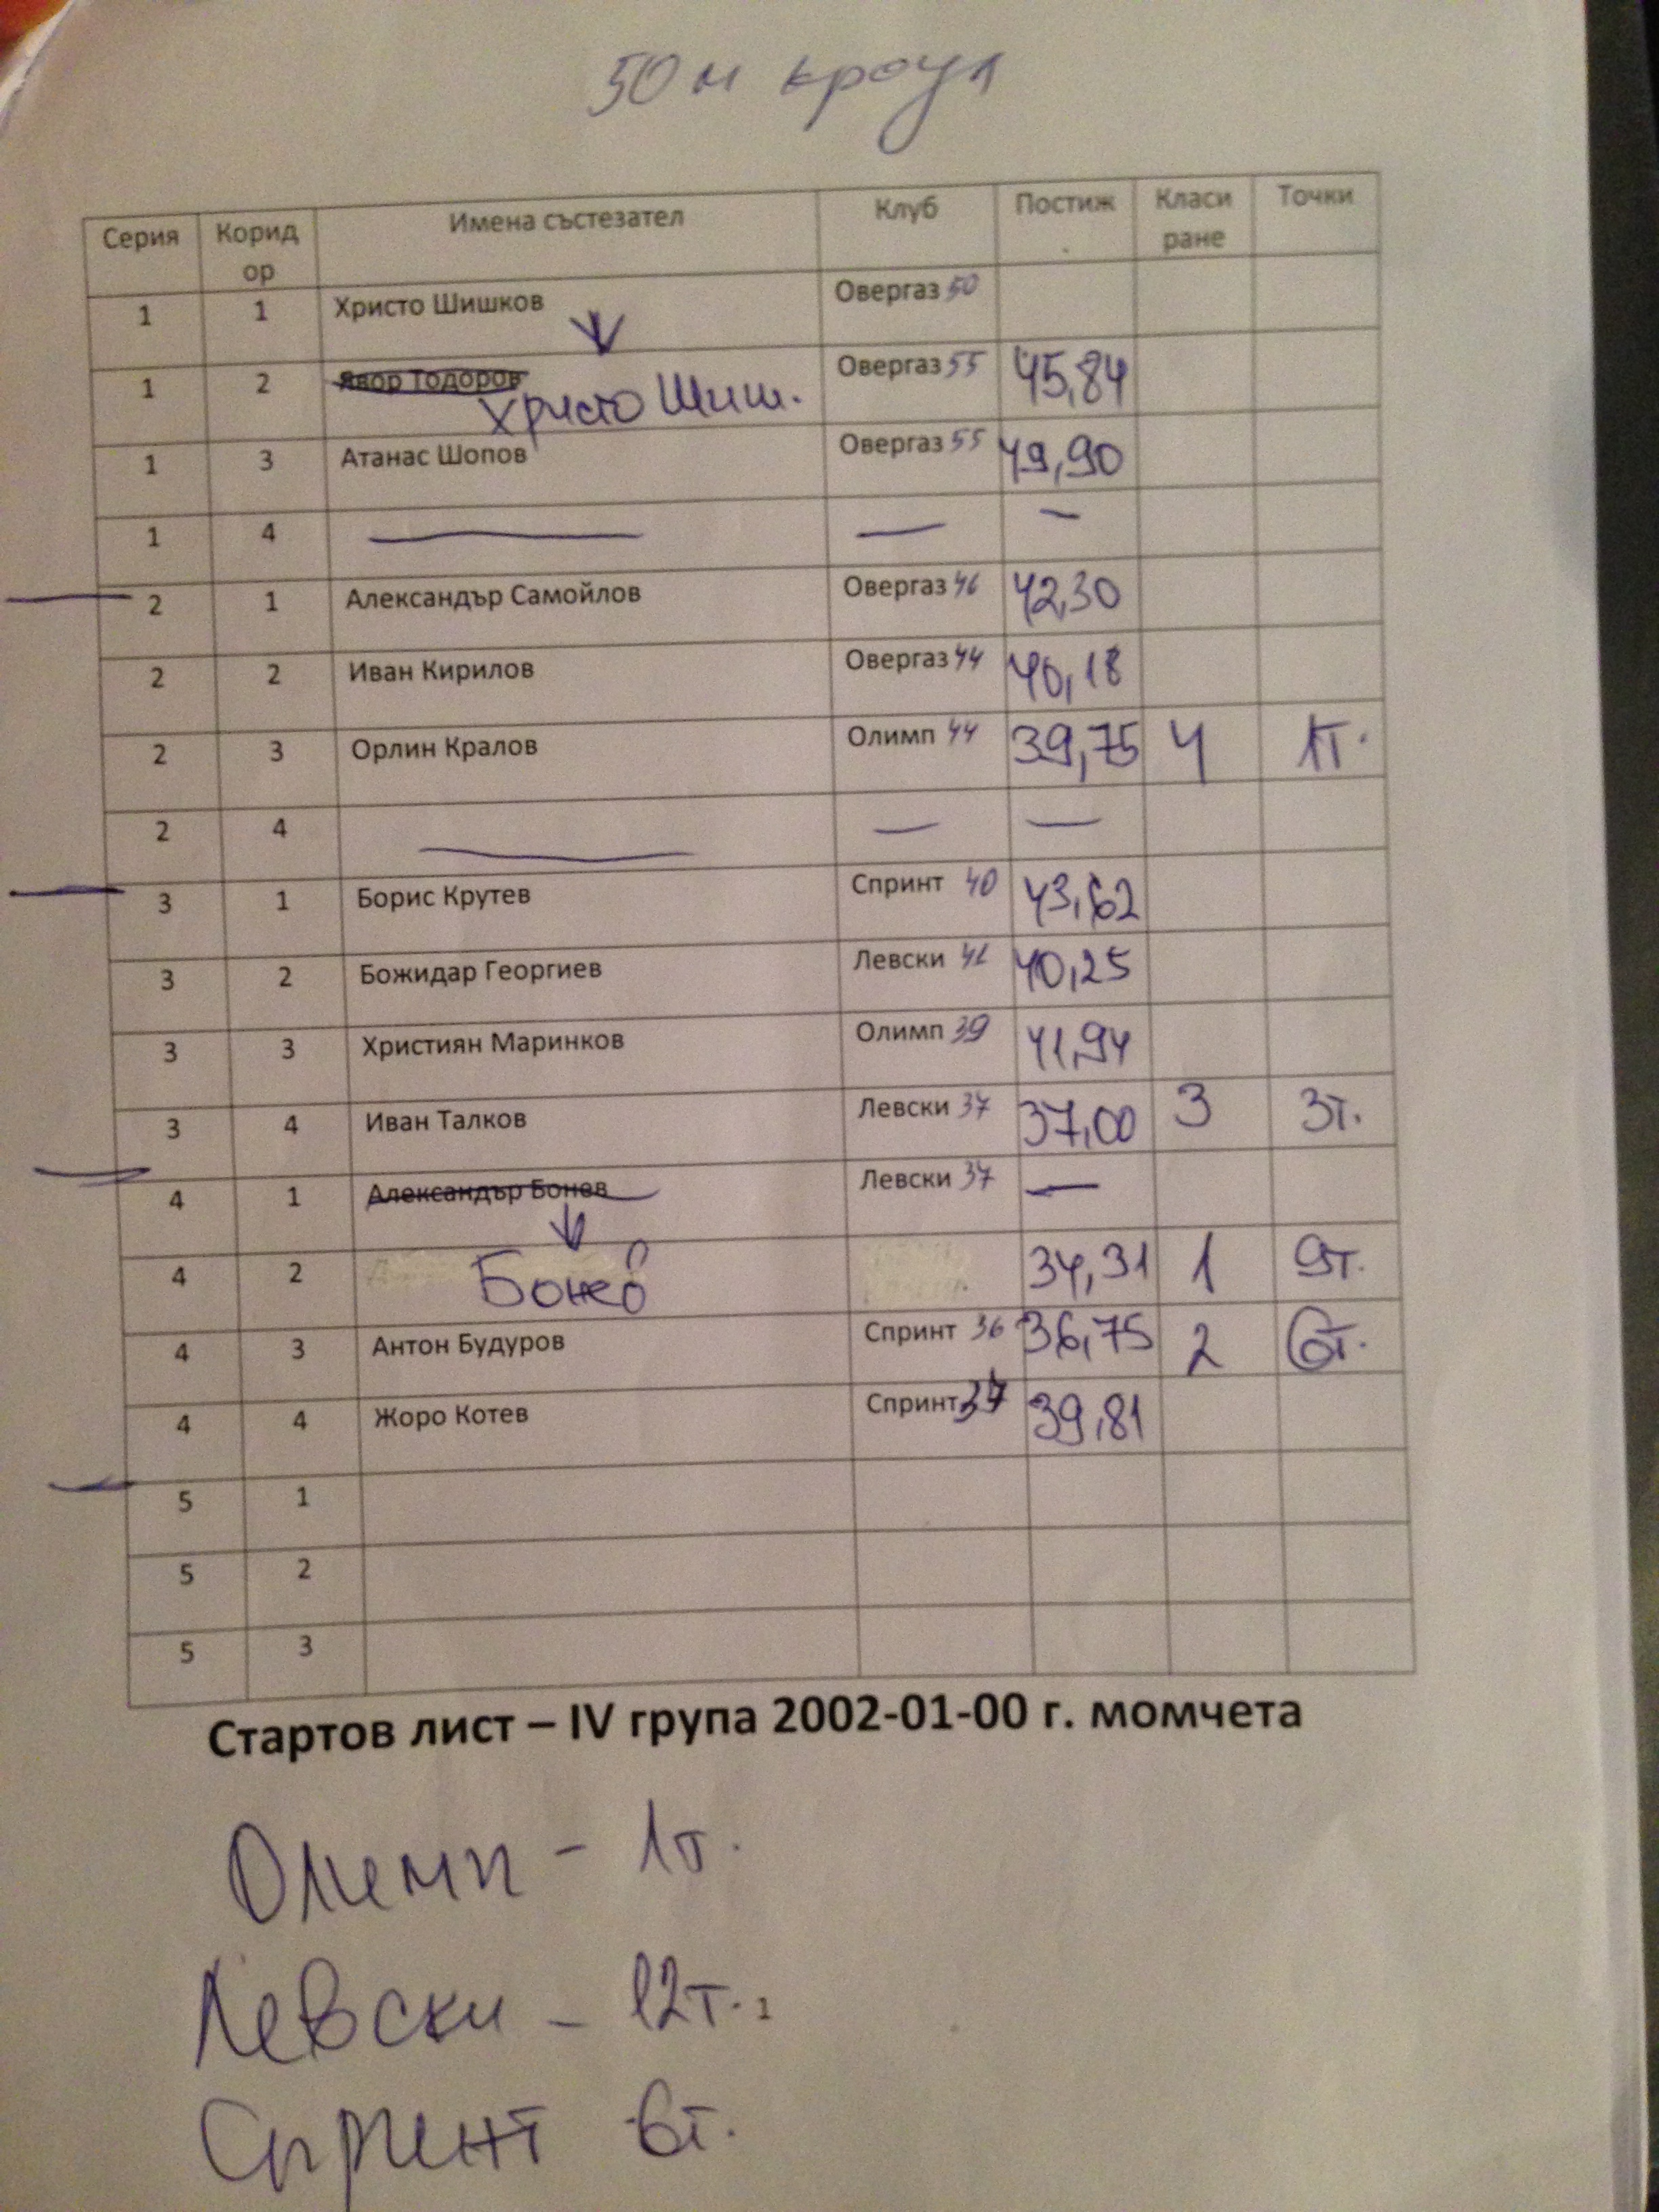 50 м кроул
Серия Коридор Имена състезател Клуб Постиж. Класиране Точки
1 1 Христо Шишков Овергаз 50
1 2 Явор Тодоров Христо Шиш. Овергаз 55 45,84
1 3 Атанас Шопов Овергаз 55 49,90
1 4 — — —
2 1 Александър Самойлов Овергаз 46 42,30
2 2 Иван Кирилов Овергаз 44 40,18
2 3 Орлин Кралов Олимп 44 39,75 4 1т.
2 4 — — —
3 1 Борис Крутев Спринт 40 43,62
3 2 Божидар Георгиев Левски 41 40,25
3 3 Християн Маринков Олимп 39 41,94
3 4 Иван Талков Левски 37 37,00 3 3т.
4 1 Александър Бонев Левски 37 —
4 2 Бонев 34,31 1 9т.
4 3 Антон Будуров Спринт 36 36,75 2 6т.
4 4 Жоро Котев Спринт 37 39,81
5 1
5 2
5 3
Стартов лист – IV група 2002-01-00 г. момчета
Олимп - 1т.
Левски - 12т. 1
Спринт - 6т.